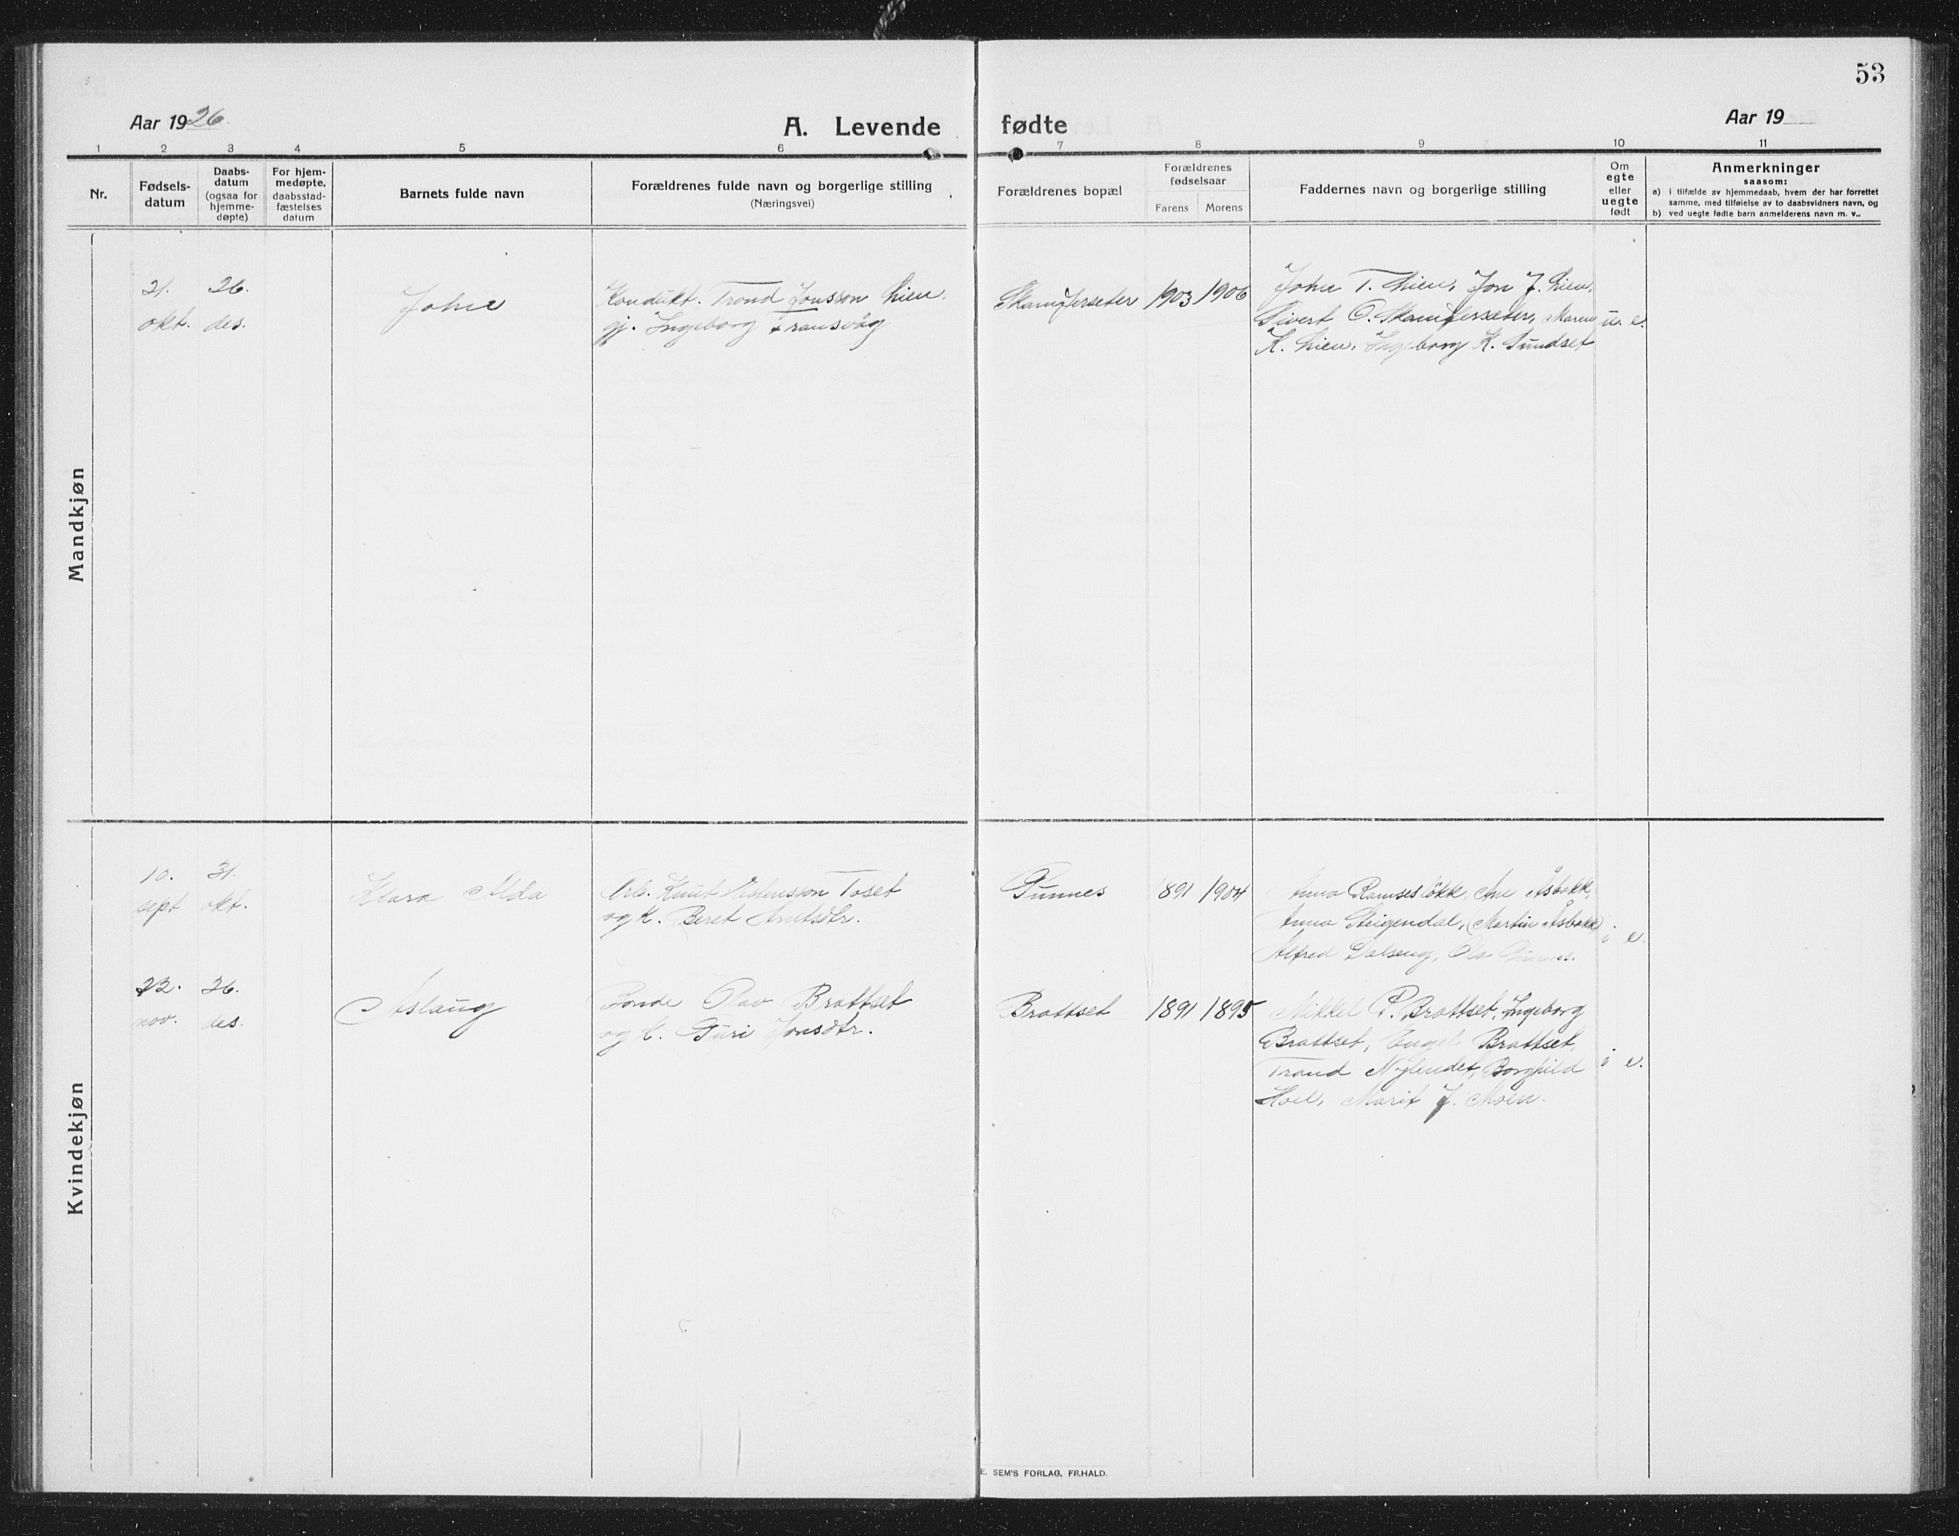 53
Aar 1926.
A. Levende fødte
Aar 19
1 2 3 4 5 6 7 8 9 10 11
Nr.
Fødsels-
datum
Daabs-
datum
(ogsaa for
hjemme-
døpte)
For hjem-
medøpte,
daabsstad-
fæstelses
datum
Barnets fulde navn
Forældrenes fulde navn og borgerlige stilling
(Næringsvei)
Forældrenes bopæl
Forældrenes
fødselsaar
Farens Morens
Faddernes navn og borgerlige stilling
Om
egte
eller
uegte
født
Anmerkninger
saasom:
a) i tilfælde av hjemmedaab, hvem der har forrettet
samme, med tilføielse av to daabsvidners navn, og
b) ved uegte fødte barn anmelderens navn m. v..
Mandkjøn
21.
okt.
26.
des.
Johne
Kondukt. Trond Jonsson Lien.
gj. Ingeborg Transvåg
Skamferseter
1903 1906
John T. Lien, Jon J. Lien,
Sivert O. Skamferseter, Maren
K. Lien, Ingeborg K. Sundset
u. e.
Kvindekjøn
10.
sept
31.
okt.
Klara Alda
Arb. Knut Toset
og k. Beret Arntsdtr.
Gunnes
1891 1904
Anna Ramsesløkk, Ane Åsbakk,
Anna Steigendal, (Martin Åsbakk)
Alfred Dalseng, Ola Gunnes.
e.
22.
nov.
26.
des.
Aslaug
Bonde Olav Brattset
og k. Guri Jonsdtr.
Brattset
1891 1895
Mikkel P. Brattset, Ingeborg
Brattset, Brattset,
Trond Nylendet, Borghild
Hoel, Marit J. Moen.
e.
E. SEM'S FORLAG, FR.HALD.